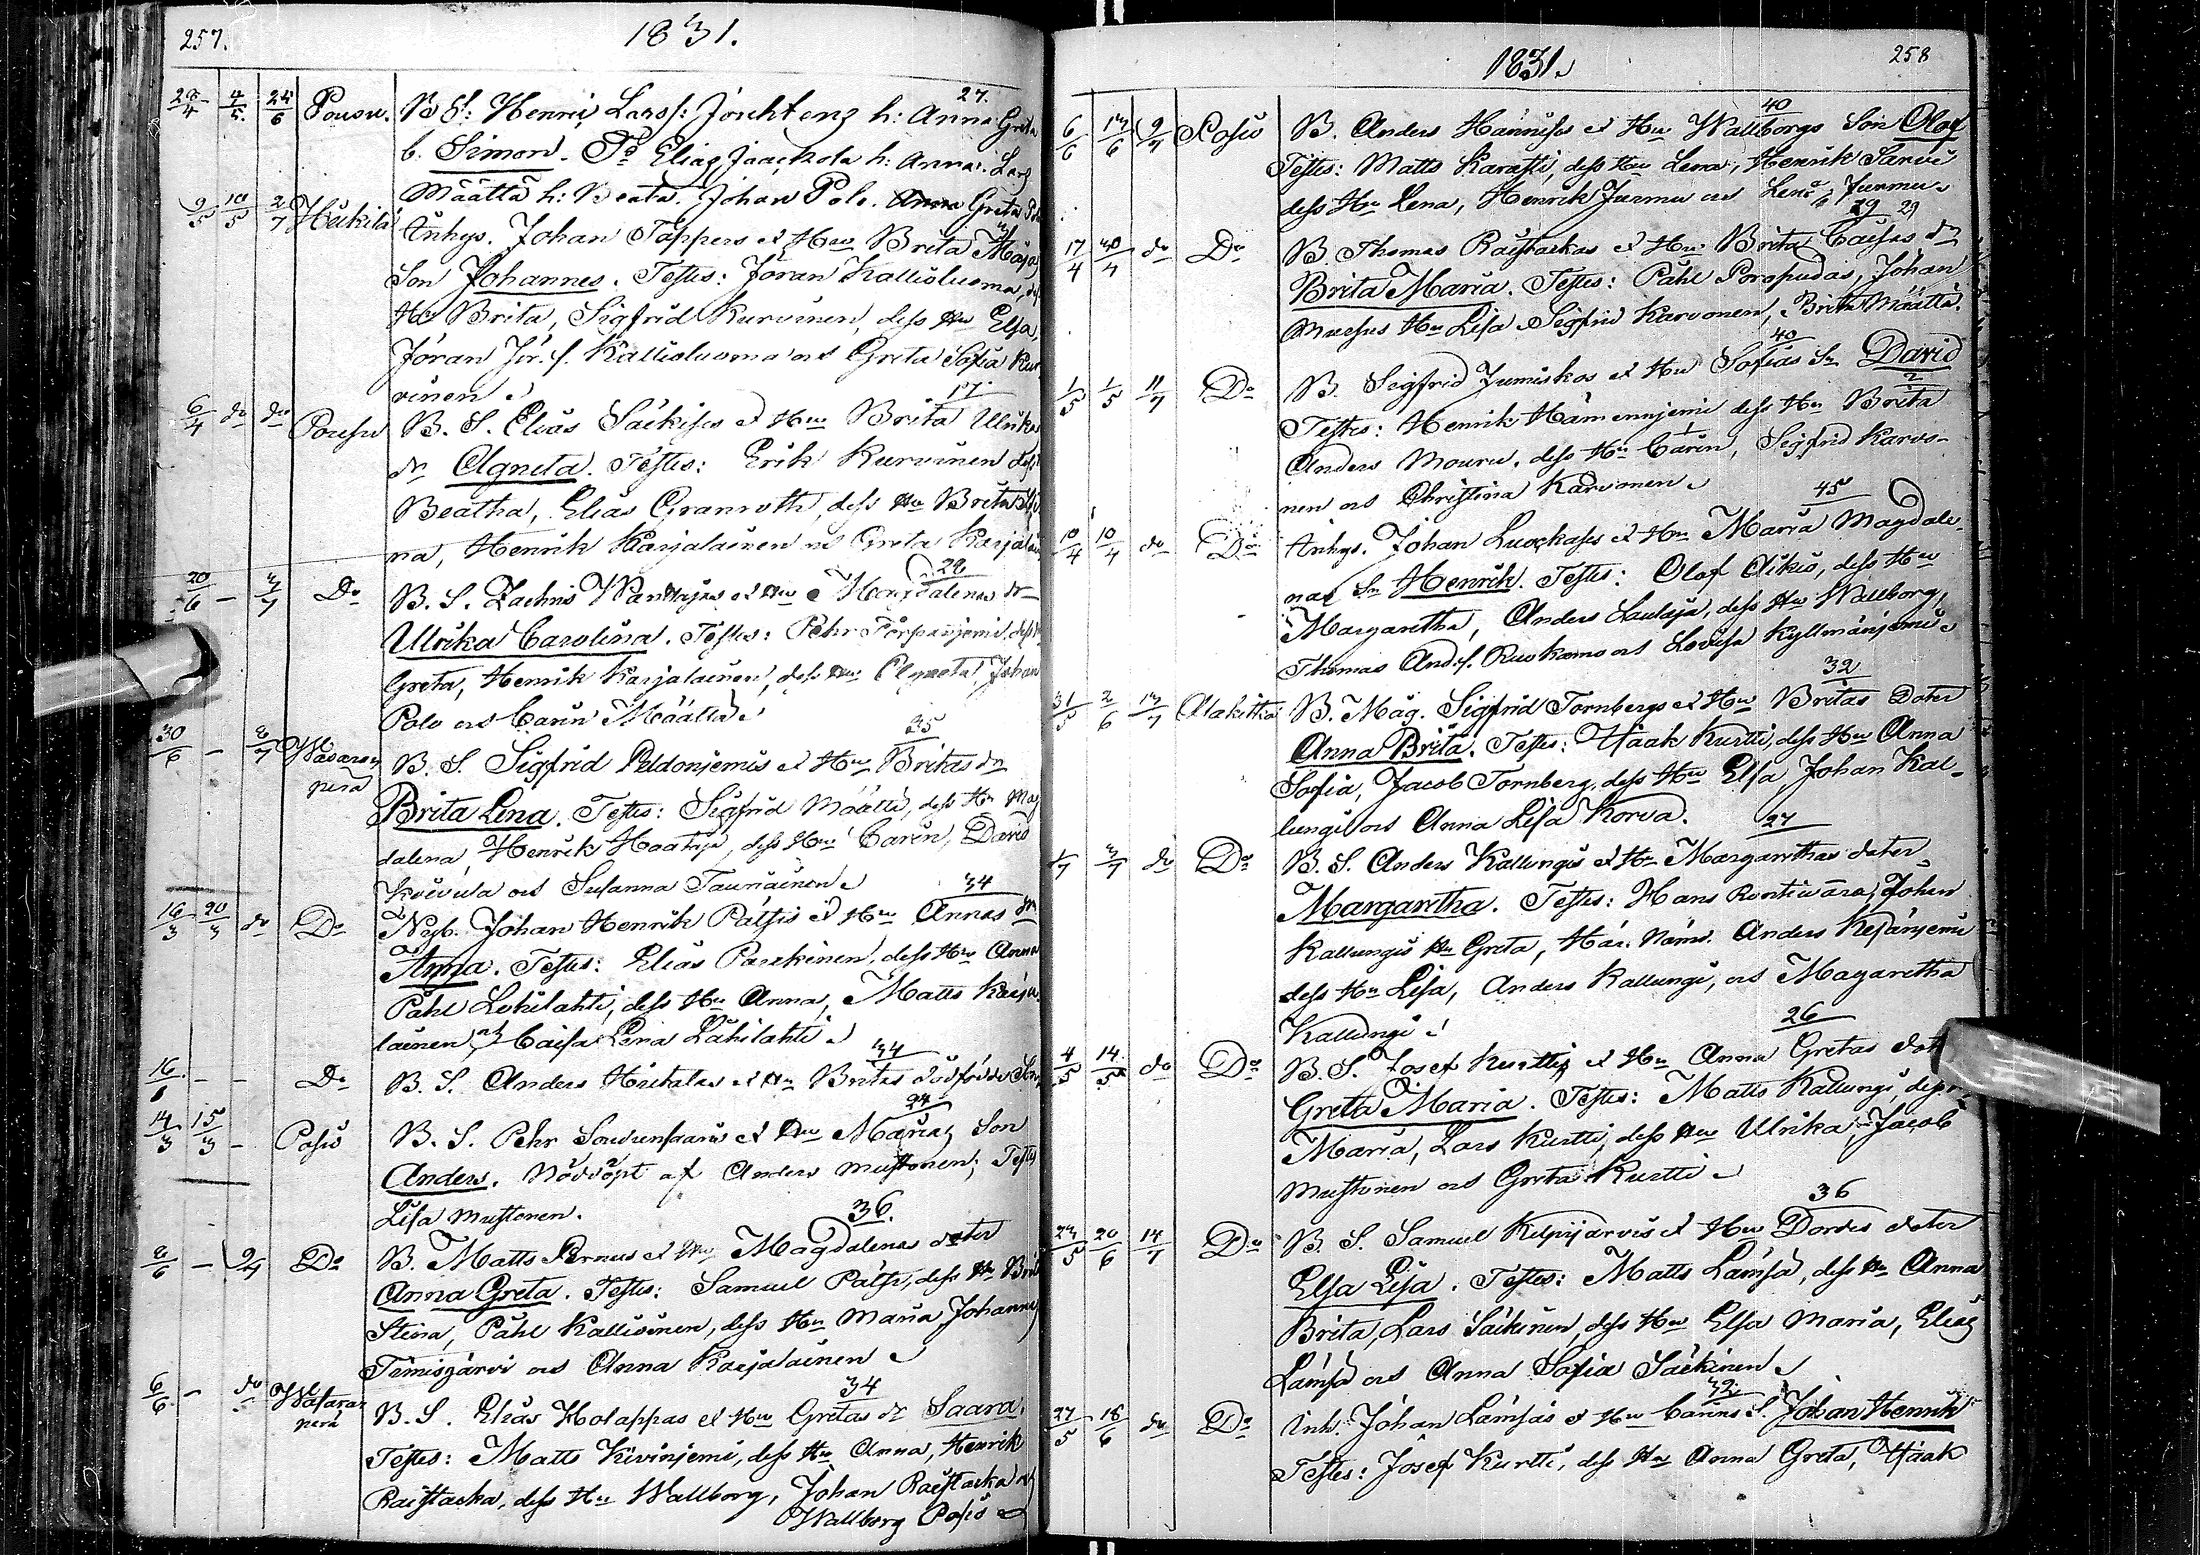 257.
1831.
28/4 4/5 24/6 Poušu. B. S: Henric Larss: h: Anna Greta 27.
b. Simon. Elias Jaackola h: Anna. Lars
Määttä h: Beata. Johan Polo. Anna Greta Polo
9/5 10/5 2/7 Heikilä Inhys. Johan Tappers et Hru Brita Majas
Son Johannes. Testes: Jöran Kallioluoma, dess
Hu Brita, Sigfrid Kurvinen, dess Hu Elsa,
Jöran Jör. s. Kallioluoma och Greta Sofia Kur
vinen.
17.
6/4 do do Pousu B. S. Elias Säckises et Hru Brita Ulrikas
dr Agneta. Testes: Erik Kurvinen dess
Beatha, Elias Granroth, dess Hu Brita
na, Henrik Karjalainen och Greta Karjalai
28
20/6 – 3/7 Do B. S. Zachris et Hru Magdalenas dr
Ulrika Carolina. Testes: Pehr dess
Greta, Henrik Karjalainen, dess Hru Agneta, Johan
Polo och Carin Määttä
35
30/6 – 8/7 Wasaran
perä B. S. Sigfrid Peldoniemis et Hru Britas dr
Brita Lena. Testes: Sigfrid Määttä, dess Hu Mag
dalena Henrik Haataja, dess Hru Carin, David
Koivula och Susanna Taunainen
34
16/3 20/3 do Do Nyb. Johan Henrik Pätsis et Hru Annas dr
Anna. Testes: Elias Parkinen, dess Hru Anna
Påhl Lohilahti, dess Hu Anna, Matts Karja
lainen, och Caisa Lena Lohilahti
34
16/1 – – Do B. S. Anders Hietalas et Hu Britas dödfödde Son
24
14/3 15/3 – Posio B. S. Pehr et Hru Marias Son
Anders. Nöddöpt af Anders Mustonen; Testes
Lisa Mustonen.
36.
8/6 – 9/7 Do B. Matts Pernus et Hru Magdalenas doter
Anna Greta. Testes: Samuel Pätsi, dess Hu Brita
Stina, Påhl Kallioinen, dess Hu Maria, Johannes
Timisjärvi och Anna Karjalainen
34
6/6 – do Wasaran
perä B. S. Elias Holappas et Hru Gretas dr Saara.
Testes: Matts Kivinjemi, dess Hu Anna, Henrik
Raistacka, dess Hu Wallborg, Johan Raistacka och
Wallborg Posio
1831.
258
40
6/6 13/6 9/7 Posio B. Anders Hannises et Hru Wallborgs Son Olof
Testes: Matts Karasti, dess Hru Lena, Henrik Sarvi
dess Hu Lena, Henrik Jurmu och Lena Jurmu
29 29
17/4 do Do B. Thomas Raistackas et Hru Brita Caisas dr
Brita Maria. Testes: Påhl Porapudas, Johan
Hu Lisa Sigfrid Karvonen, Brita Määttä.
40
1/5 1/5 11/7 Do B. Sigfrid Jumiskos et Hu Sofias Sn David
Testes: Henrik Hämeenniemi dess Hu Brita
Anders Mouru, dess Hu Carin, Sigfrid Karvo-
nen och Christina Karvonen
45
10/4 10/4 do Do Inhys. Johan et Hu Maria Magdale-
nas Sn Henrik. Testes: Olof Aikio, dess Hru
Margaretha, Anders Laulaja, dess Hu Wallborg,
Thomas And.s. Ruokamo och Lovisa Kyllmänjemi
32
31/5 2/6 13/7 Alakitka B. Mag. Sigfrid Tornbergs et Hru Britas Doter
Anna Brita. Testes: Isaak Kurtti, dess Hru Anna
Sofia, Jacob Tornberg, dess Hru Elsa, Johan Kal-
lungi och Anna Lisa Korva.
27
1/7 3/7 do Do B. S. Anders Kallungis et Hu Margarethas doter
Margaretha. Testes: Hans Rontiwaara, Johan
Kallungis Hu Greta, Här. Näms. Anders
dess Hu Lisa, Anders Kallungi, och Magaretha
Kallungi
26
4/5 14/5 do Do B. S. Josef Kurttis et Hu Anna Gretas dot
Greta Maria. Testes: Matts Kallungi, dess
Maria, Lars Kurtti, dess Hru Ulrika, Jacob
Mustonen och Greta Kurtti
36
24/5 20/6 14/7 Do B. S. Samuel Kilpijärvis et Hru Dordes doter
Elsa Lisa. Testes: Matts Lämsä, dess Hu Anna
Brita, Lars Säkinen, dess Hru Elsa Maria, Elias
Lämsä och Anna Sofia Säckinen
32
27/5 18/6 do Do Inh. Johan Lämsäs et Hru Carins S. Johan Henrik
Testes: Josef Kurtti, dess Hu Anna Greta, Isaak